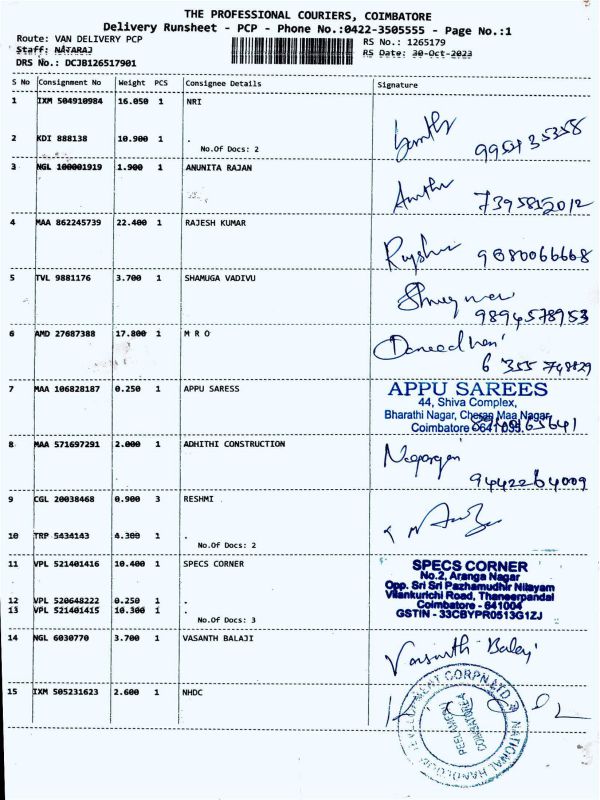 THE PROFESSIONAL COURIERS, COIMBATORE
Delivery Runsheet - PCP - Phone No.:0422-3505555 - Page No.:1
Route: VAN DELIVERY PCP
RS No.: 1265179
Staff: NATARAJ
RS Date: 30-Oct-2023
DRS No.: DCJB126517901
S No Consignment No Weight PCS Consignee Details Signature
1 IXM 504910984 16.050 1 NRI
2 KDI 888138 10.900 1 .
No.Of Docs: 2
3 NGL 100001919 1.900 1 ANUNITA RAJAN
7395812012
4 MAA 862245739 22.400 1 RAJESH KUMAR
9880066668
5 TVL 9881176 3.700 1 SHAMUGA VADIVU
9894578953
6 AMD 27687388 17.800 1 M R O
6
7 MAA 106828187 0.250 1 APPU SARESS
APPU SAREES
44, Shiva Complex,
Bharathi Nagar, Cheran Maa Nagar,
Coimbatore
8 MAA 571697291 2.000 1 ADHITHI CONSTRUCTION
9442264009
9 CGL 20038468 0.900 3 RESHMI
10 TRP 5434143 4.300 1 .
No.Of Docs: 2
11 VPL 521401416 10.400 1 SPECS CORNER
SPECS CORNER
No.2, Aranga Nagar
Opp. Sri Sri Pazhamudhir Nilayam
Vilankurichi Road, Thaneerpandal
Coimbatore - 641004
GSTIN - 33CBYPR0513G1ZJ
12 VPL 520648222 0.250 1 .
13 VPL 521401415 10.300 1 .
No.Of Docs: 3
14 NGL 6030770 3.700 1 VASANTH BALAJI
Vasanth Balaji
15 IXM 505231623 2.600 1 NHDC
NATIONAL HANDLOOM DEVELOPMENT CORPN LTD
PEELAMEDU
COIMBATORE